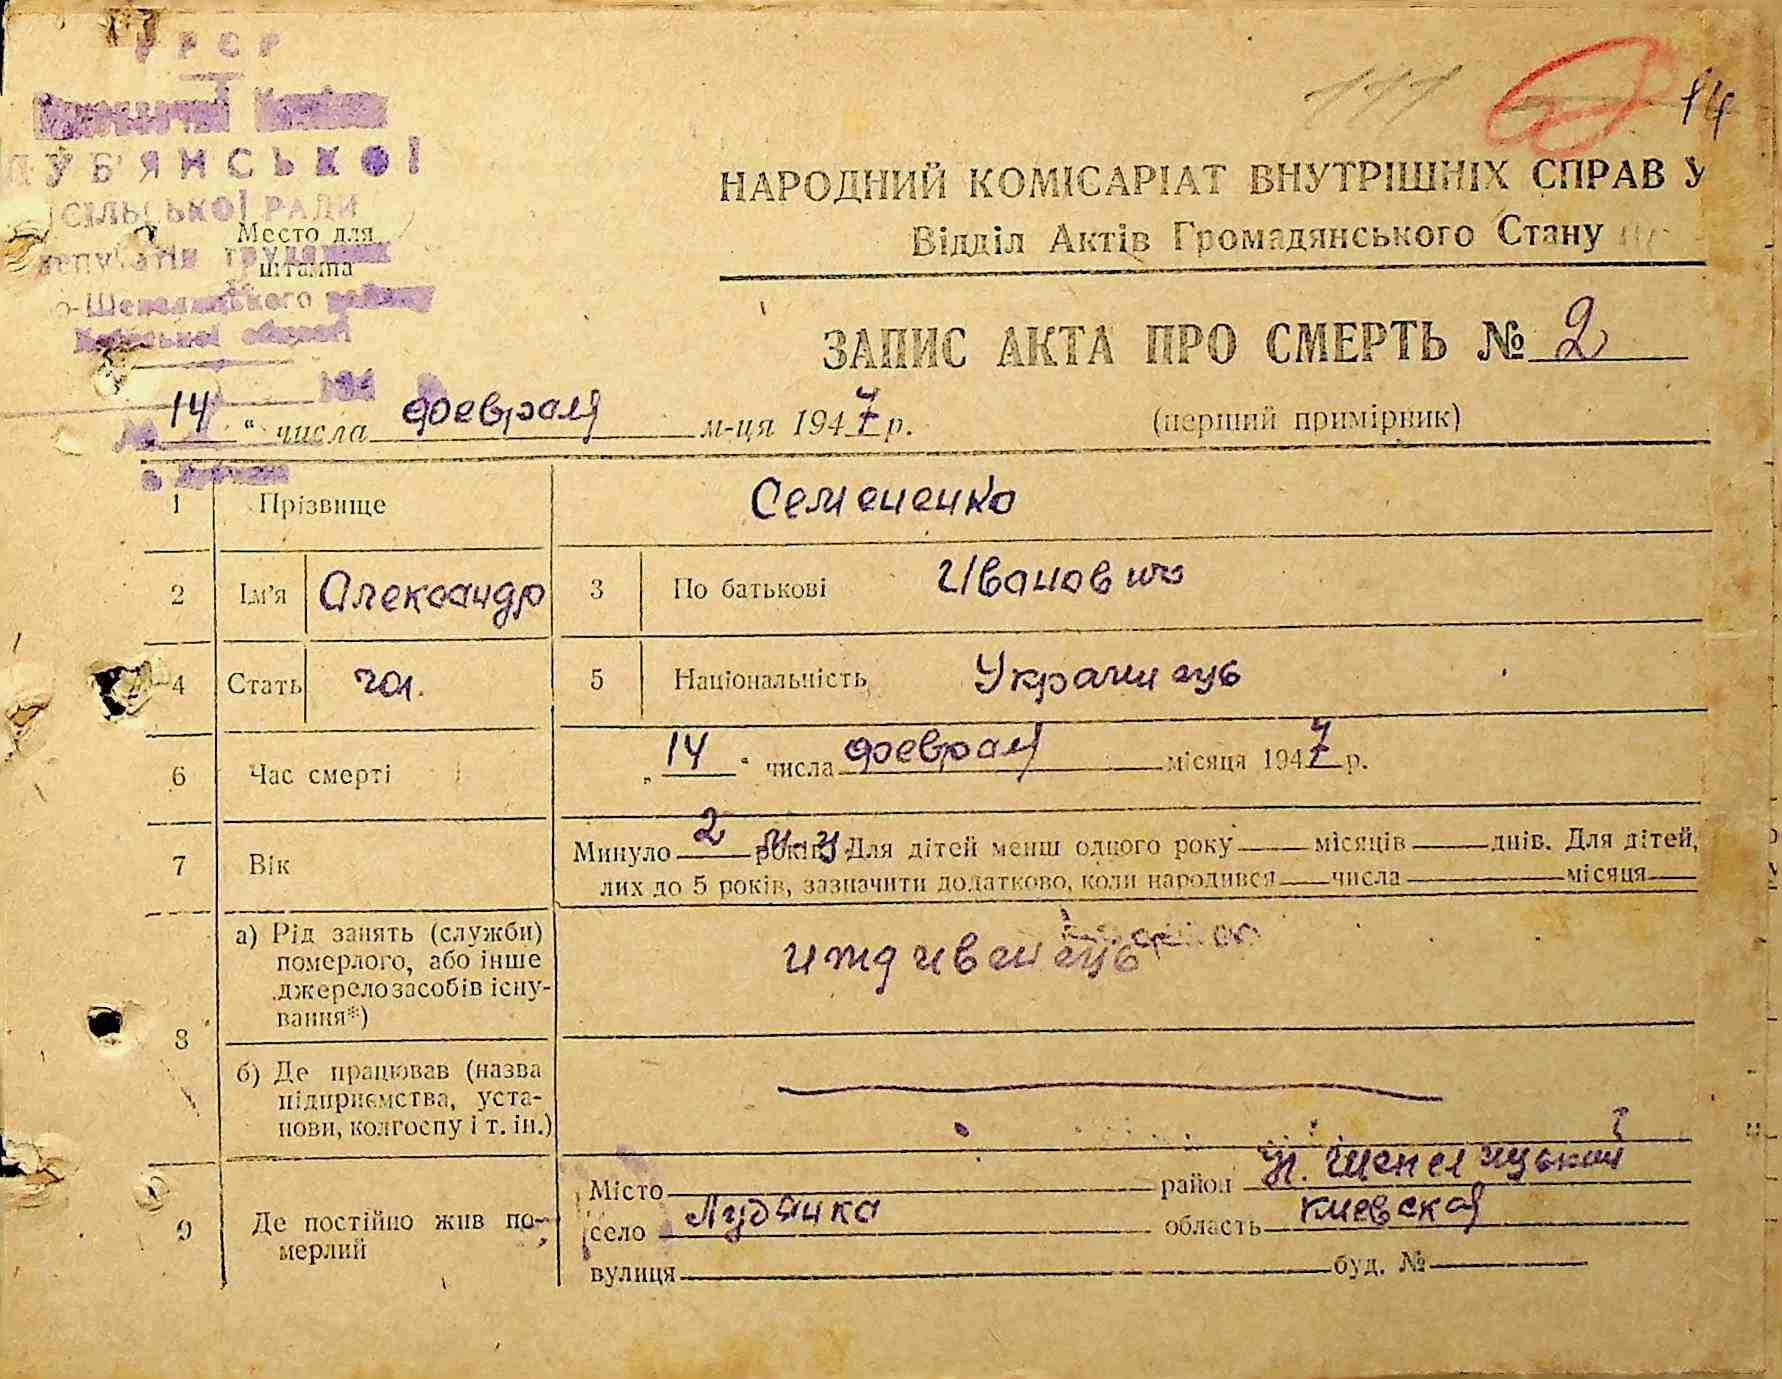 УРСР
Виконавчий Комітет
ЛУБ'ЯНСЬКОЇ
СІЛЬСЬКОЇ РАДИ
Место для
депутатів трудящих
штампа
о-Шевелицького району
Київської області
194
111 14
НАРОДНИЙ КОМІСАРІАТ ВНУТРІШНІХ СПРАВ У
Відділ Актів Громадянського Стану
ЗАПИС АКТА ПРО СМЕРТЬ № 2
14 " числа февраля м-ця 1947 р. (перший примірник)
1 Прізвище Семененко
2 Ім'я Александр 3 По батькові Иванович
4 Стать чол. 5 Національність Украинець
6 Час смерті „ 14 " числа февраля місяця 1947 р.
7 Вік Минуло 2 років. Для дітей менш одного року місяців днів. Для дітей,
лих до 5 років, зазначити додатково, коли народився числа місяця
8 а) Рід занять (служби) померлого, або інше джерело засобів існування*) иждивенець
б) Де працював (назва підприємства, установи, колгоспу і т. ін.)
9 Де постійно жив померлий
Місто район
село Лубянка область Киевская
вулиця буд. №